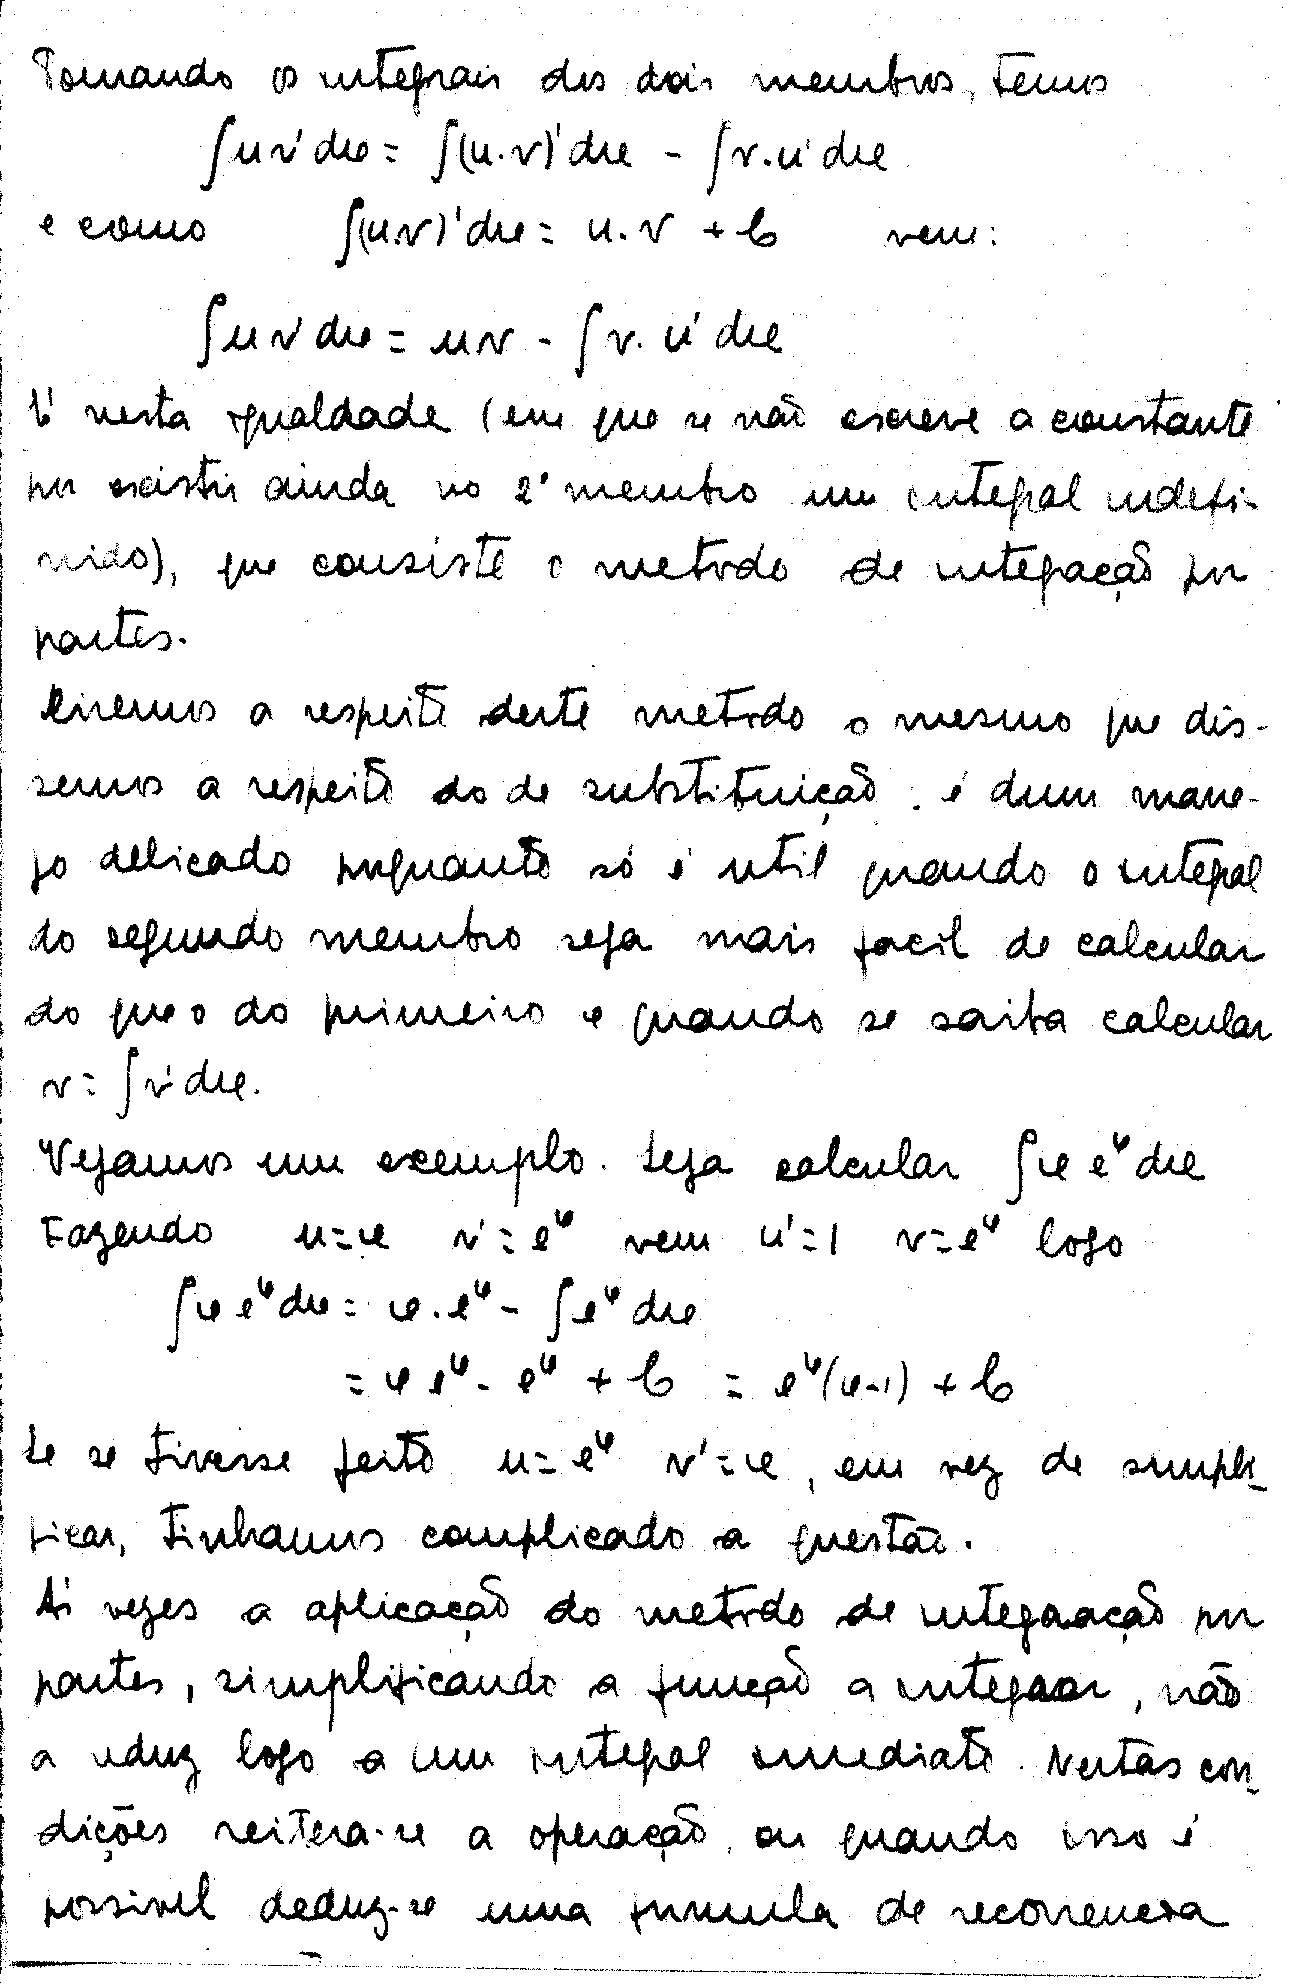 Tomando os integrais dos dois membros, temos
∫uv'dx = ∫(u.v)'dx - ∫v.u'dx
e como ∫(u.v)'dx = u.v + C vem:
∫uv'dx = uv - ∫v.u'dx
É nesta igualdade (em que se não escreve a constante
por existir ainda no 2º membro um integral indefi-
nido), que consiste o metodo de integração por
partes.
Diremos a respeito deste metodo o mesmo que dis-
semos a respeito do de substituição. é dum mane-
jo delicado porquanto só é util quando o integral
do segundo membro seja mais facil de calcular
do que o do primeiro e quando se saiba calcular
v = ∫v'dx.
Vejamos um exemplo. Seja calcular ∫x e^x dx
Fazendo u=x v'=e^x vem u'=1 v=e^x logo
∫x e^x dx = x.e^x - ∫e^x dx
= x e^x - e^x + C = e^x(x-1) + C
Se se tivesse feito u=e^x v'=x, em vez de simpli-
ficar, tinhamos complicado a questão.
Ás vezes a aplicação do metodo de integração por
partes, simplificando a função a integrar, não
a reduz logo a um integral imediato. Nestas con-
dições reitera-se a operação, ou quando isso é
possivel deduz-se uma formula de recorrencia